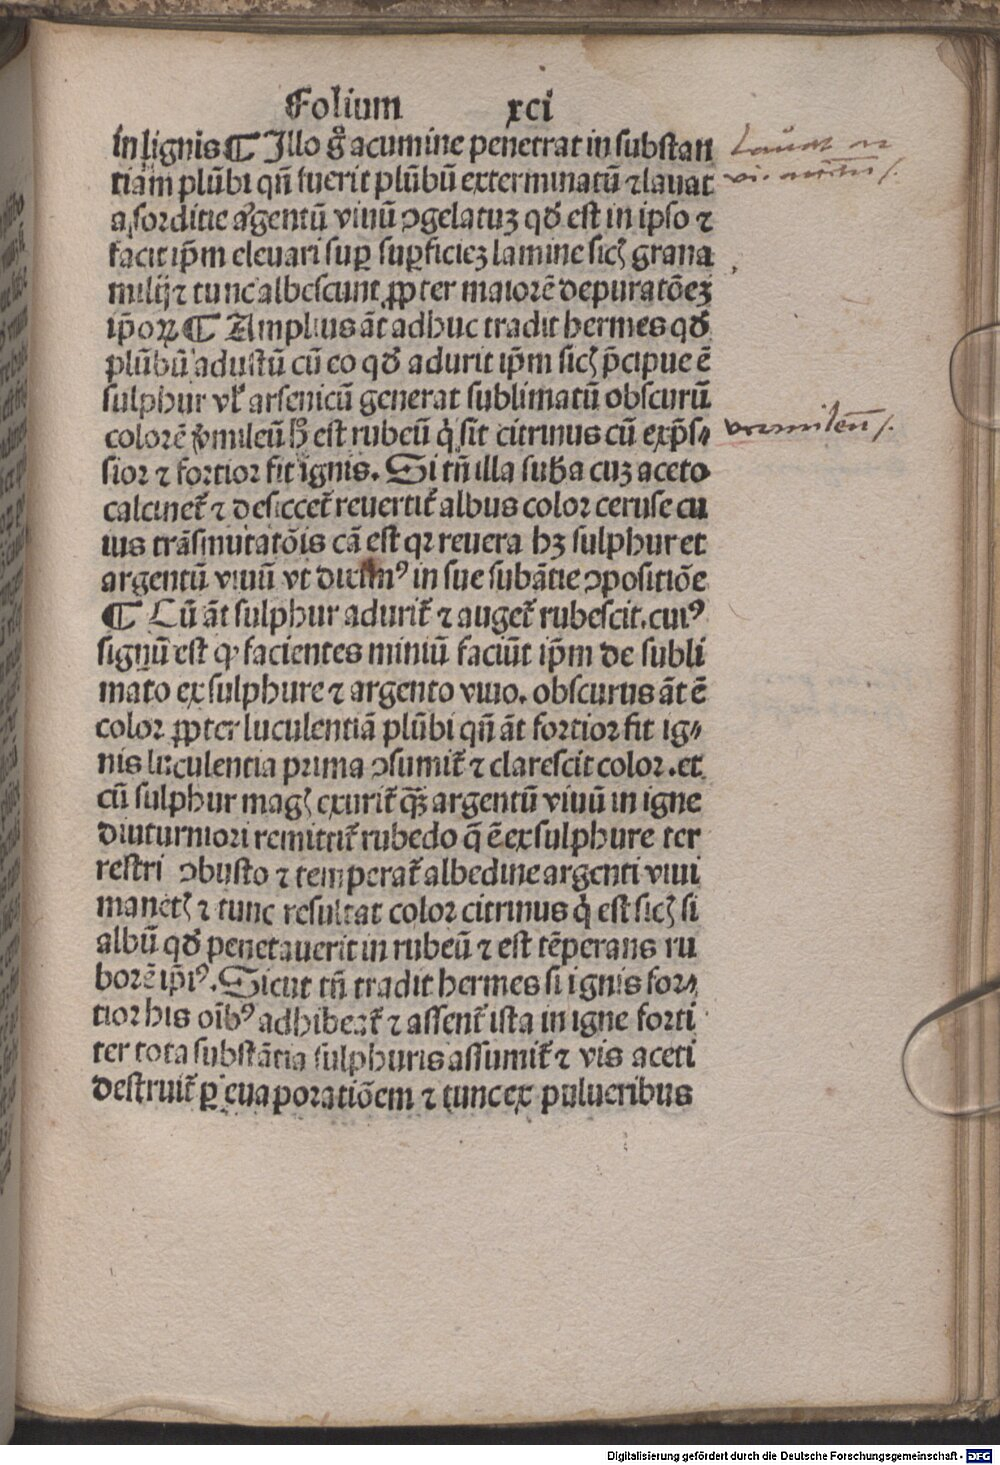 Folium xci
in lignis ¶ Illo g̊ acumine penetrat in substan
tiam plūbi qn̄ fuerit plūbū exterminatū ⁊ lauat
a sorditie argentū viuū ↄgelatuꝫ qđ est in ipso ⁊
facit ip̄m eleuari suꝑ suꝑficieꝫ lamine sicꝭ grana
milij ⁊ tunc albescunt ꝓpter maiorē depuratōeꝫ
ip̄oꝝ ¶ Amplius āt adhuc tradit hermes qđ
plūbū adustū cū eo qđ adurit ip̄m sicꝭ p̄cipue ē
sulphur vl̕ arsenicū generat sublimatū obscurū
colorē v̓mileū hꝰ est rubeū q̇ sit citrinus cū exp̄s⸗
sior ⁊ fortior fit ignis. Si tn̄ illa sub̄a cuꝫ aceto
calcinet᷑ ⁊ desiccet᷑ reuertit᷑ albus color ceruse cu
ius trāsmutatōis cā est qꝛ reuera hꝫ sulphur et
argentū viuū vt diximꝰ in sue subātie ↄpositiōe
¶ Cū āt sulphur adurit᷑ ⁊ auget᷑ rubescit.cuiꝰ
signū est ꝙ facientes miniū faciūt ip̄m de subli
mato ex sulphure ⁊ argento viuo. obscurus āt ē
color ꝓpter luculentiā plūbi qn̄ āt fortior fit ig⸗
nis luculentia prima ↄsumit᷑ ⁊ clarescit color.et
cū sulphur magꝭ exurit᷑ qꝫ̄ argentū viuū in igne
diuturniori remittit᷑ rubedo q̄ ē ex sulphure ter
restri ↄbusto ⁊ temperat᷑ albedine argenti viui
manetꝭ ⁊ tunc resultat color citrinus q̇ est sicꝭ si
albū qđ penetauerit in rubeū ⁊ est tēperans ru
borē ip̄iꝰ. Sicut tn̄ tradit hermes si ignis for⸗
tior his oībꝰ adhibeat᷑ ⁊ assent᷑ ista in igne forti
ter tota substātia sulphuris assumit᷑ ⁊ vis aceti
destruit᷑ ꝑ euaporatiōem ⁊ tunc ex pulueribus
Lauat
vermileū /.
Digitalisierung gefördert durch die Deutsche Forschungsgemeinschaft - DFG